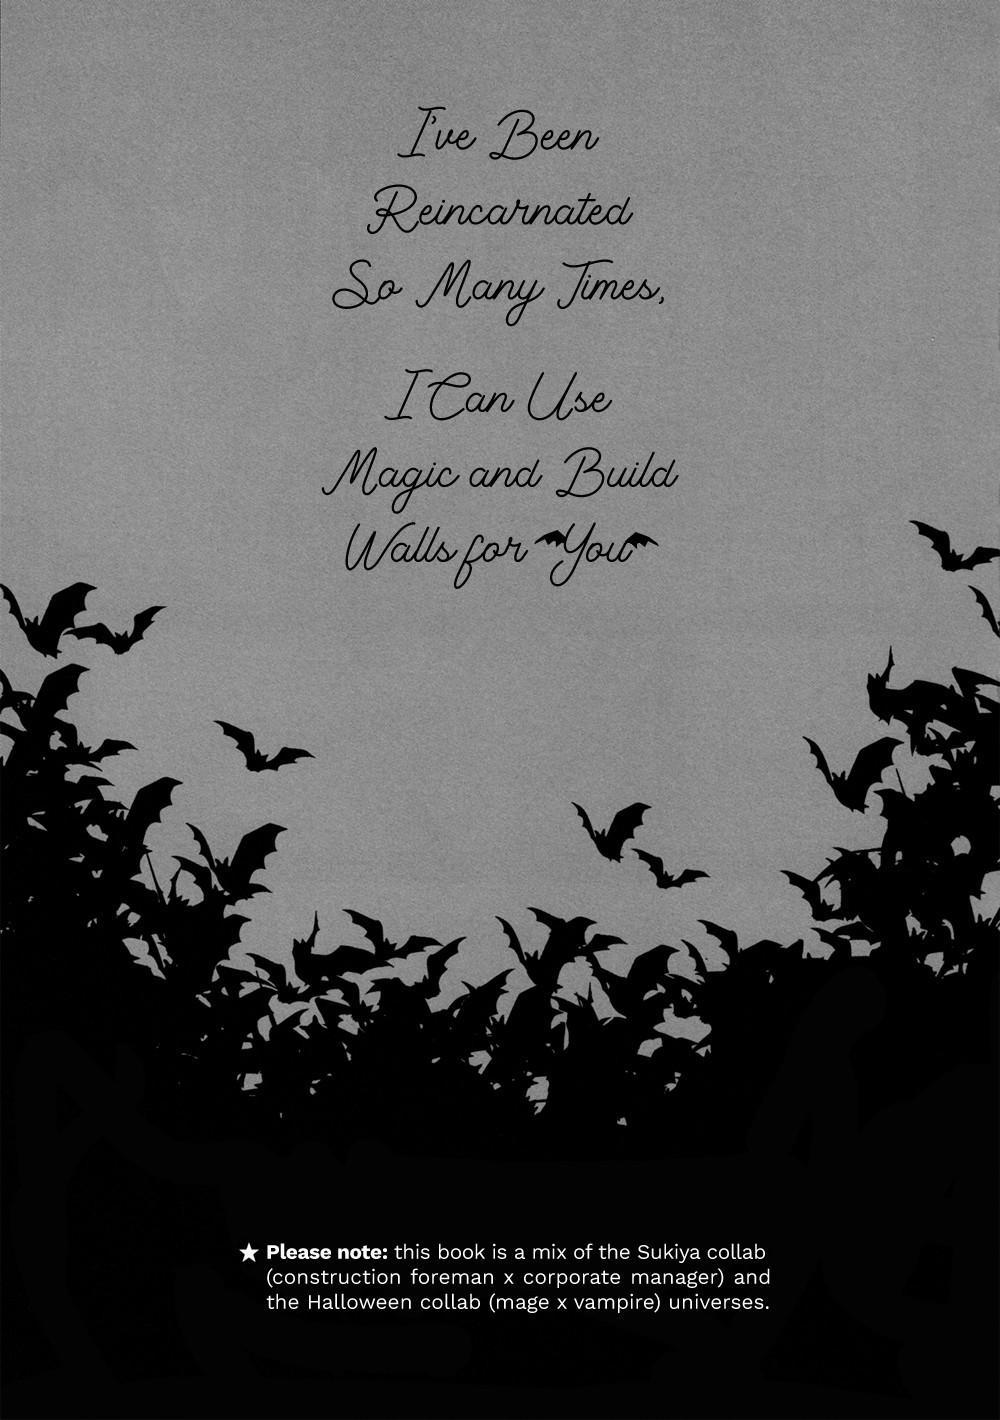 I've Been
Reincarnated
So Many Times,
I Can Use
Magic and Build
Walls for You
★ Please note: this book is a mix of the Sukiya collab
(construction foreman x corporate manager) and
the Halloween collab (mage x vampire) universes.